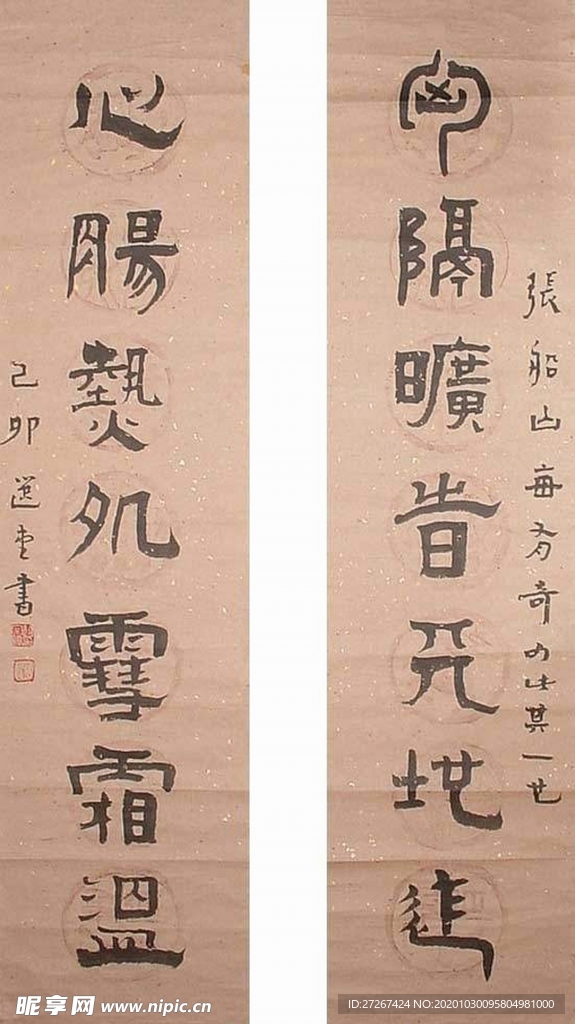 匈隔曠旹天地迮
張船山每有奇句此其一也
心腸熱処雪霜溫
己卯選堂書
昵享网 www.nipic.cn
ID:27267424 NO:20201030095804981000